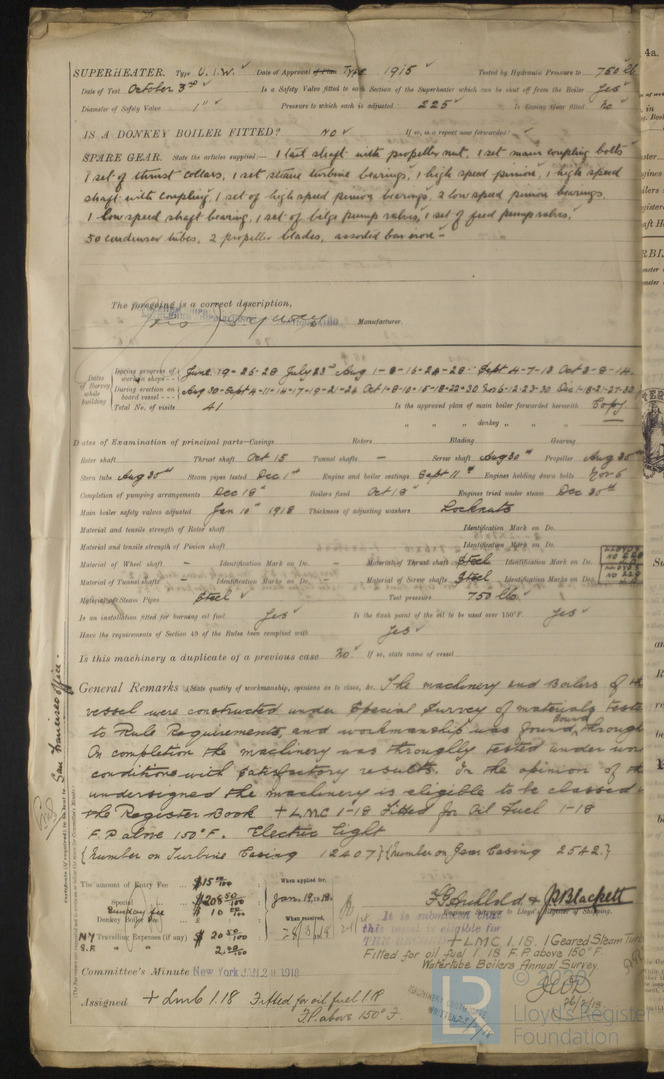 SUPERHEATER. Type U.T.W. Date of Approval of Plan Type 1915 Tested by Hydraulic Pressure to 750 lb
Date of Test October 3rd Is a Safety Valve fitted to each Section of the Superheater which can be shut off from the Boiler Yes
Diameter of Safety Valve 1" Pressure to which each is adjusted 225 Is Easing Gear fitted No
IS A DONKEY BOILER FITTED? No If so, is a report now forwarded? -
SPARE GEAR. State the articles supplied:— 1 tail shaft with propeller nut, 1 set main coupling bolts
1 set of thrust collars, 1 set steam turbine bearings, 1 high speed pinion, 1 high speed
shaft with coupling, 1 set of high speed pinion bearings, 2 low speed pinion bearings,
1 low speed shaft bearing, 1 set of bilge pump valves, 1 set of feed pump valves,
50 condenser tubes, 2 propeller blades, assorted bar iron -
The foregoing is a correct description,
Manufacturer.
Dates of Survey while building
During progress of work in shops - - June 19-26-28 July 23rd Aug 1-8-16-24-28 Sept 4-7-13 Oct 2-8-14
During erection on board vessel - - - Aug 30-Sept 4-11-14-17-19-21-26 Oct 1-8-10-15-18-22-30 Nov 6-12-23-30 Dec 1-18-21-27-30
Total No. of visits 41 Is the approved plan of main boiler forwarded herewith Copy
" " " donkey " " "
Dates of Examination of principal parts—Casings Rotors Blading Gearing
Rotor shaft Thrust shaft Oct 15 Tunnel shafts — Screw shaft Aug 30th Propeller Aug 30th
Stern tube Aug 30th Steam pipes tested Dec 1st Engine and boiler seatings Sept 11th Engines holding down bolts Nov 6
Completion of pumping arrangements Dec 18th Boilers fixed Oct 18th Engines tried under steam Dec 30th
Main boiler safety valves adjusted Jan 10th 1918 Thickness of adjusting washers Locknuts
Material and tensile strength of Rotor shaft Identification Mark on Do.
Material and tensile strength of Pinion shaft Identification Mark on Do.
Material of Wheel shaft - Identification Mark on Do. - Material of Thrust shaft Steel Identification Mark on Do.
Material of Tunnel shafts - Identification Marks on Do. - Material of Screw shafts Steel Identification Marks on Do.
Material of Steam Pipes Steel Test pressure 750 lbs.
Is an installation fitted for burning oil fuel Yes Is the flash point of the oil to be used over 150°F. Yes
Have the requirements of Section 49 of the Rules been complied with Yes
Is this machinery a duplicate of a previous case No If so, state name of vessel
General Remarks (State quality of workmanship, opinions as to class, &c. The machinery and Boilers of th
vessel were constructed under Special Survey of materials teste
to Rule Requirements, and workmanship was found sound, through
On completion the machinery was throughly tested under wor
conditions with satisfactory results. In the opinion of the
undersigned the machinery is eligible to be classed
the Register Book + LMC 1-18 Fitted for Oil Fuel 1-18
F.P above 150°F. Electric Light
{Number on Turbine Casing 12407} {Number on Gear Casing 2542.}
San Francisco office.
The amount of Entry Fee ... $15 00/100 When applied for,
Special ... $208 50/100 Jan. 19, 1918
Donkey Boiler Fee ... $10 00/100 When received,
NY Travelling Expenses (if any) $20 50/100 28/3/18
S.F. " " 2.50/100
& J. Blackett
Engineer Surveyor to Lloyd's Register of Shipping.
It is submitted that
this vessel is eligible for
THE RECORD + LMC 1.18. 1 Geared Steam Turb
Fitted for oil fuel 1.18 F.P. above 150°F.
Watertube Boilers Annual Survey.
26/2/18
Committee's Minute New York JAN 29 1918
Assigned + LMC 1.18 Fitted for oil fuel 1.18
F.P. above 150°F
MACHINERY CERTIFICATE
WRITTEN
© 2020
Lloyd's Register
Foundation